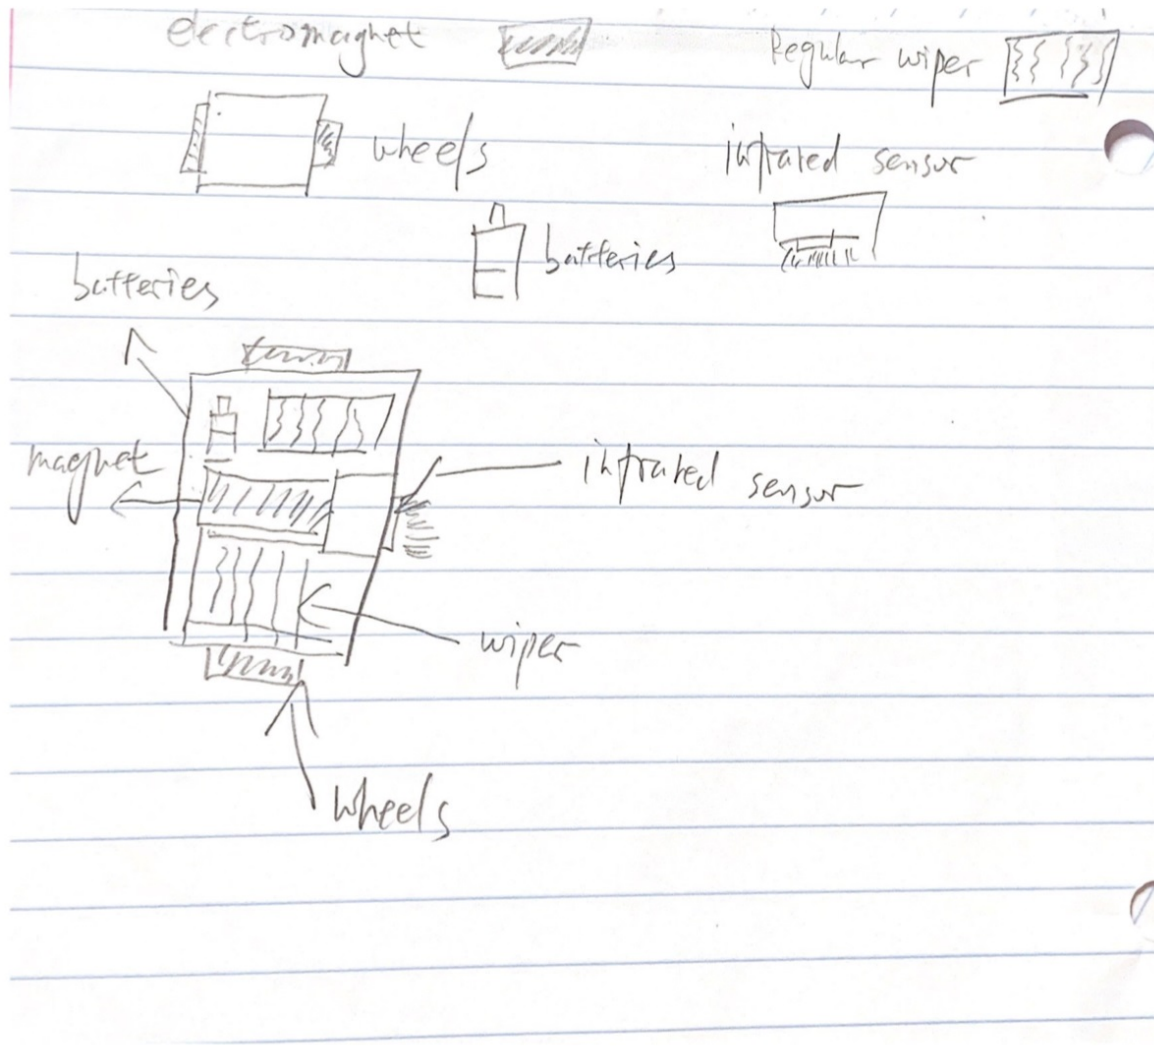 electromagnet
Regular wiper
wheels
infrared sensor
batteries
batteries
magnet
infrared sensor
wiper
wheels